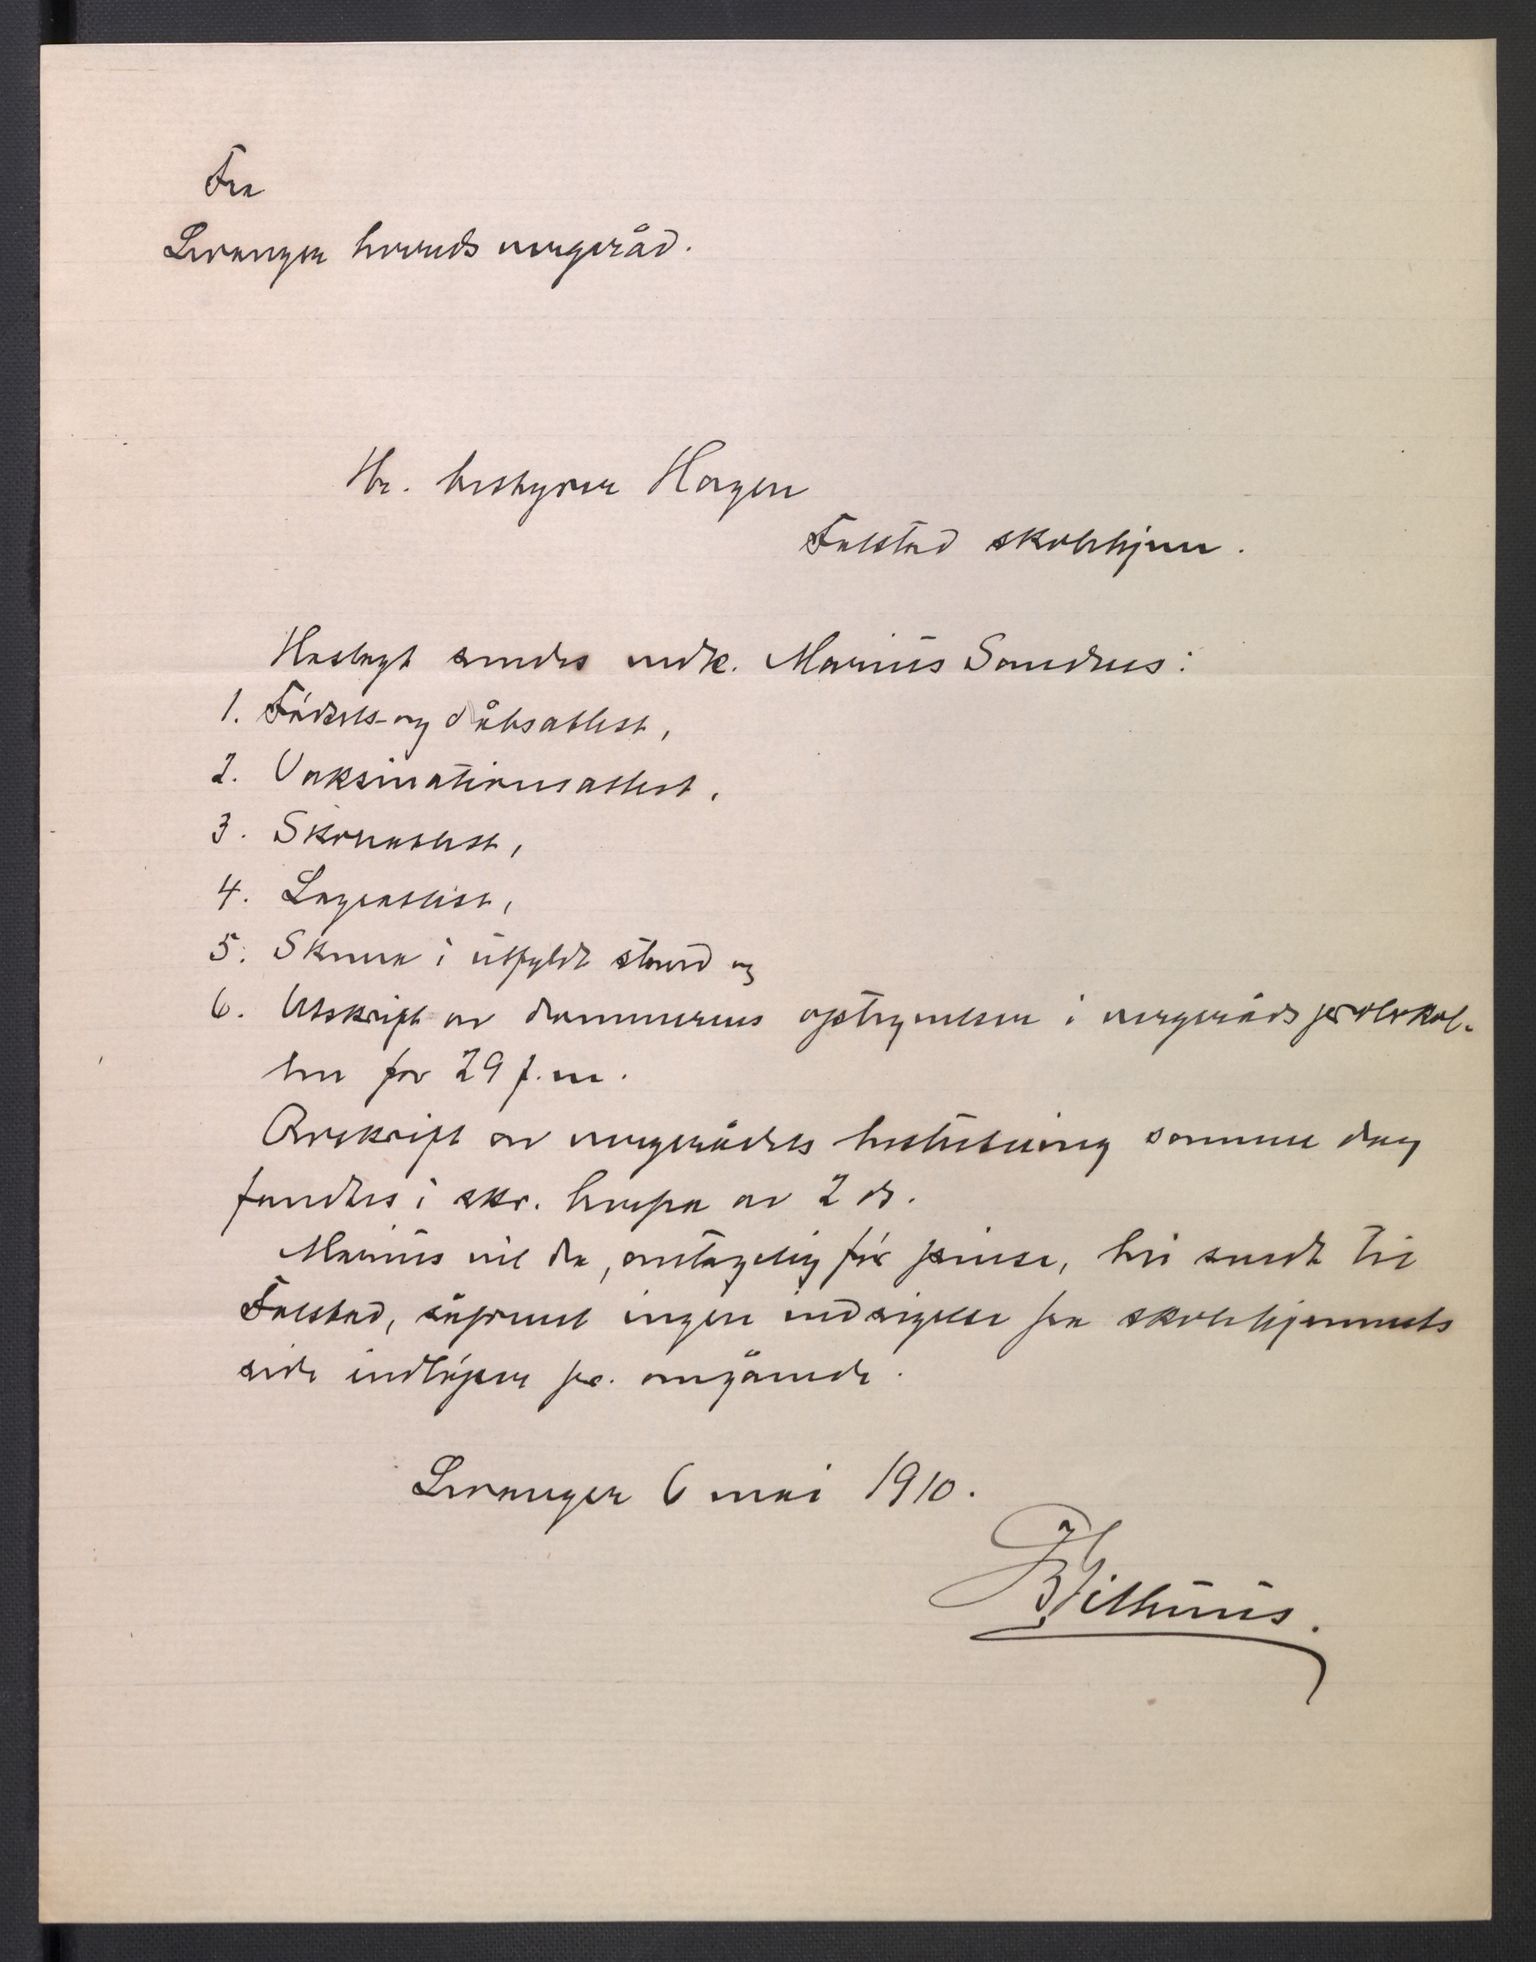 Fra
Levanger herreds vergeråd.
Hr. bestyrer Hagen
Falstad skolehjem.
Hoslagt sendes vedk. Marius Sandnes:
1. Fødsels- og dåbsattest,
2. Vaksinationsattest,
3. Skoleattest,
4. Lægeattest,
5. Skema i utfyldt stand og
6. Utskrift av dommerens optegnelser i vergeråds protokol-
len for 29 f.m.
Avskrift av vergerådets beslutning samme dag
sendtes i skr. herfra av 2 ds.
Marius vil da, antagelig før pinse, bli sendt til
Falstad, såfremt ingen indsigelse fra skolehjemmets
side indløper pr. omgående.
Levanger 6 mai 1910.